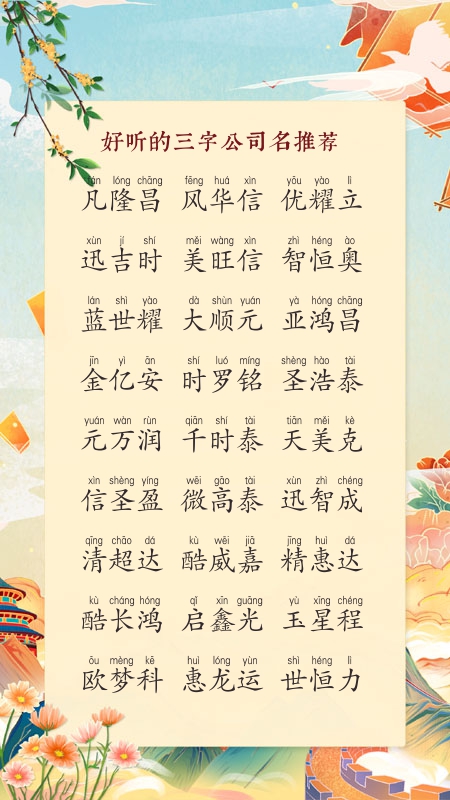 好听的三字公司名推荐
fán lóng chāng fēng huá xìn yōu yào lì
凡隆昌 风华信 优耀立
xùn jí shí měi wàng xìn zhì héng ào
迅吉时 美旺信 智恒奥
lán shì yào dà shùn yuán yà hóng chāng
蓝世耀 大顺元 亚鸿昌
jīn yì ān shí luó míng shèng hào tài
金亿安 时罗铭 圣浩泰
yuán wàn rùn qiān shí tài tiān měi kè
元万润 千时泰 天美克
xìn shèng yíng wēi gāo tài xùn zhì chéng
信圣盈 微高泰 迅智成
qīng chāo dá kù wēi jiā jīng huì dá
清超达 酷威嘉 精惠达
kù cháng hóng qǐ xīn guāng yù xīng chéng
酷长鸿 启鑫光 玉星程
ōu mèng kē huì lóng yùn shì héng lì
欧梦科 惠龙运 世恒力